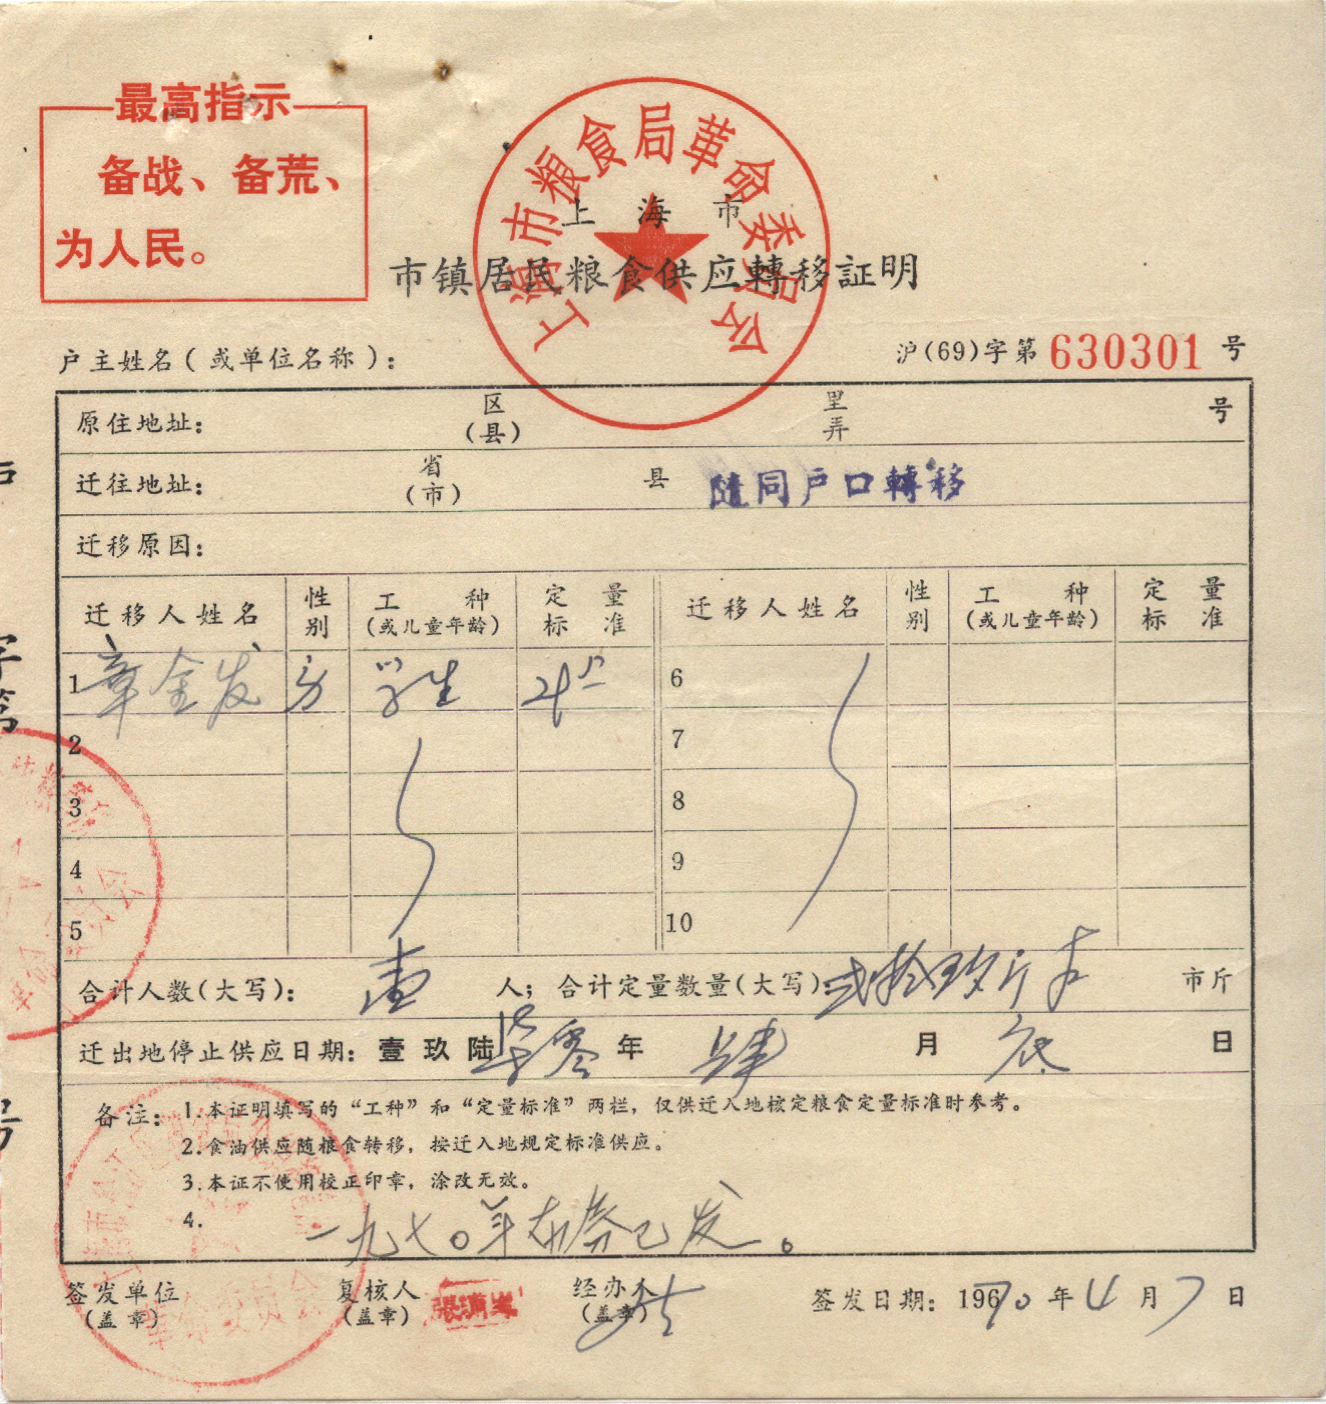 最高指示
备战、备荒、
为人民。
上海市粮食局革命委员会
上海市
市镇居民粮食供应轉移証明
户主姓名(或单位名称):
沪(69)字第630301号
原住地址: 区(县) 里弄 号
迁往地址: 省(市) 县 随同户口轉移
迁移原因:
迁移人姓名 性别 工种(或儿童年龄) 定量标准 迁移人姓名 性别 工种(或儿童年龄) 定量标准
1 章金发 男 学生 6
2 7
3 8
4 9
5 10
合计人数(大写): 壹 人; 合计定量数量(大写): 贰拾玖斤 市斤
迁出地停止供应日期: 壹玖陆柒零年 肆 月 底 日
备注: 1.本证明填写的“工种”和“定量标准”两栏,仅供迁入地核定粮食定量标准时参考。
2.食油供应随粮食转移,按迁入地规定标准供应。
3.本证不使用校正印章,涂改无效。
4.
一九七〇年布券已发。
签发单位(盖章) 复核人(盖章) 经办人(盖章) 签发日期: 1970年4月7日
户
字第
号